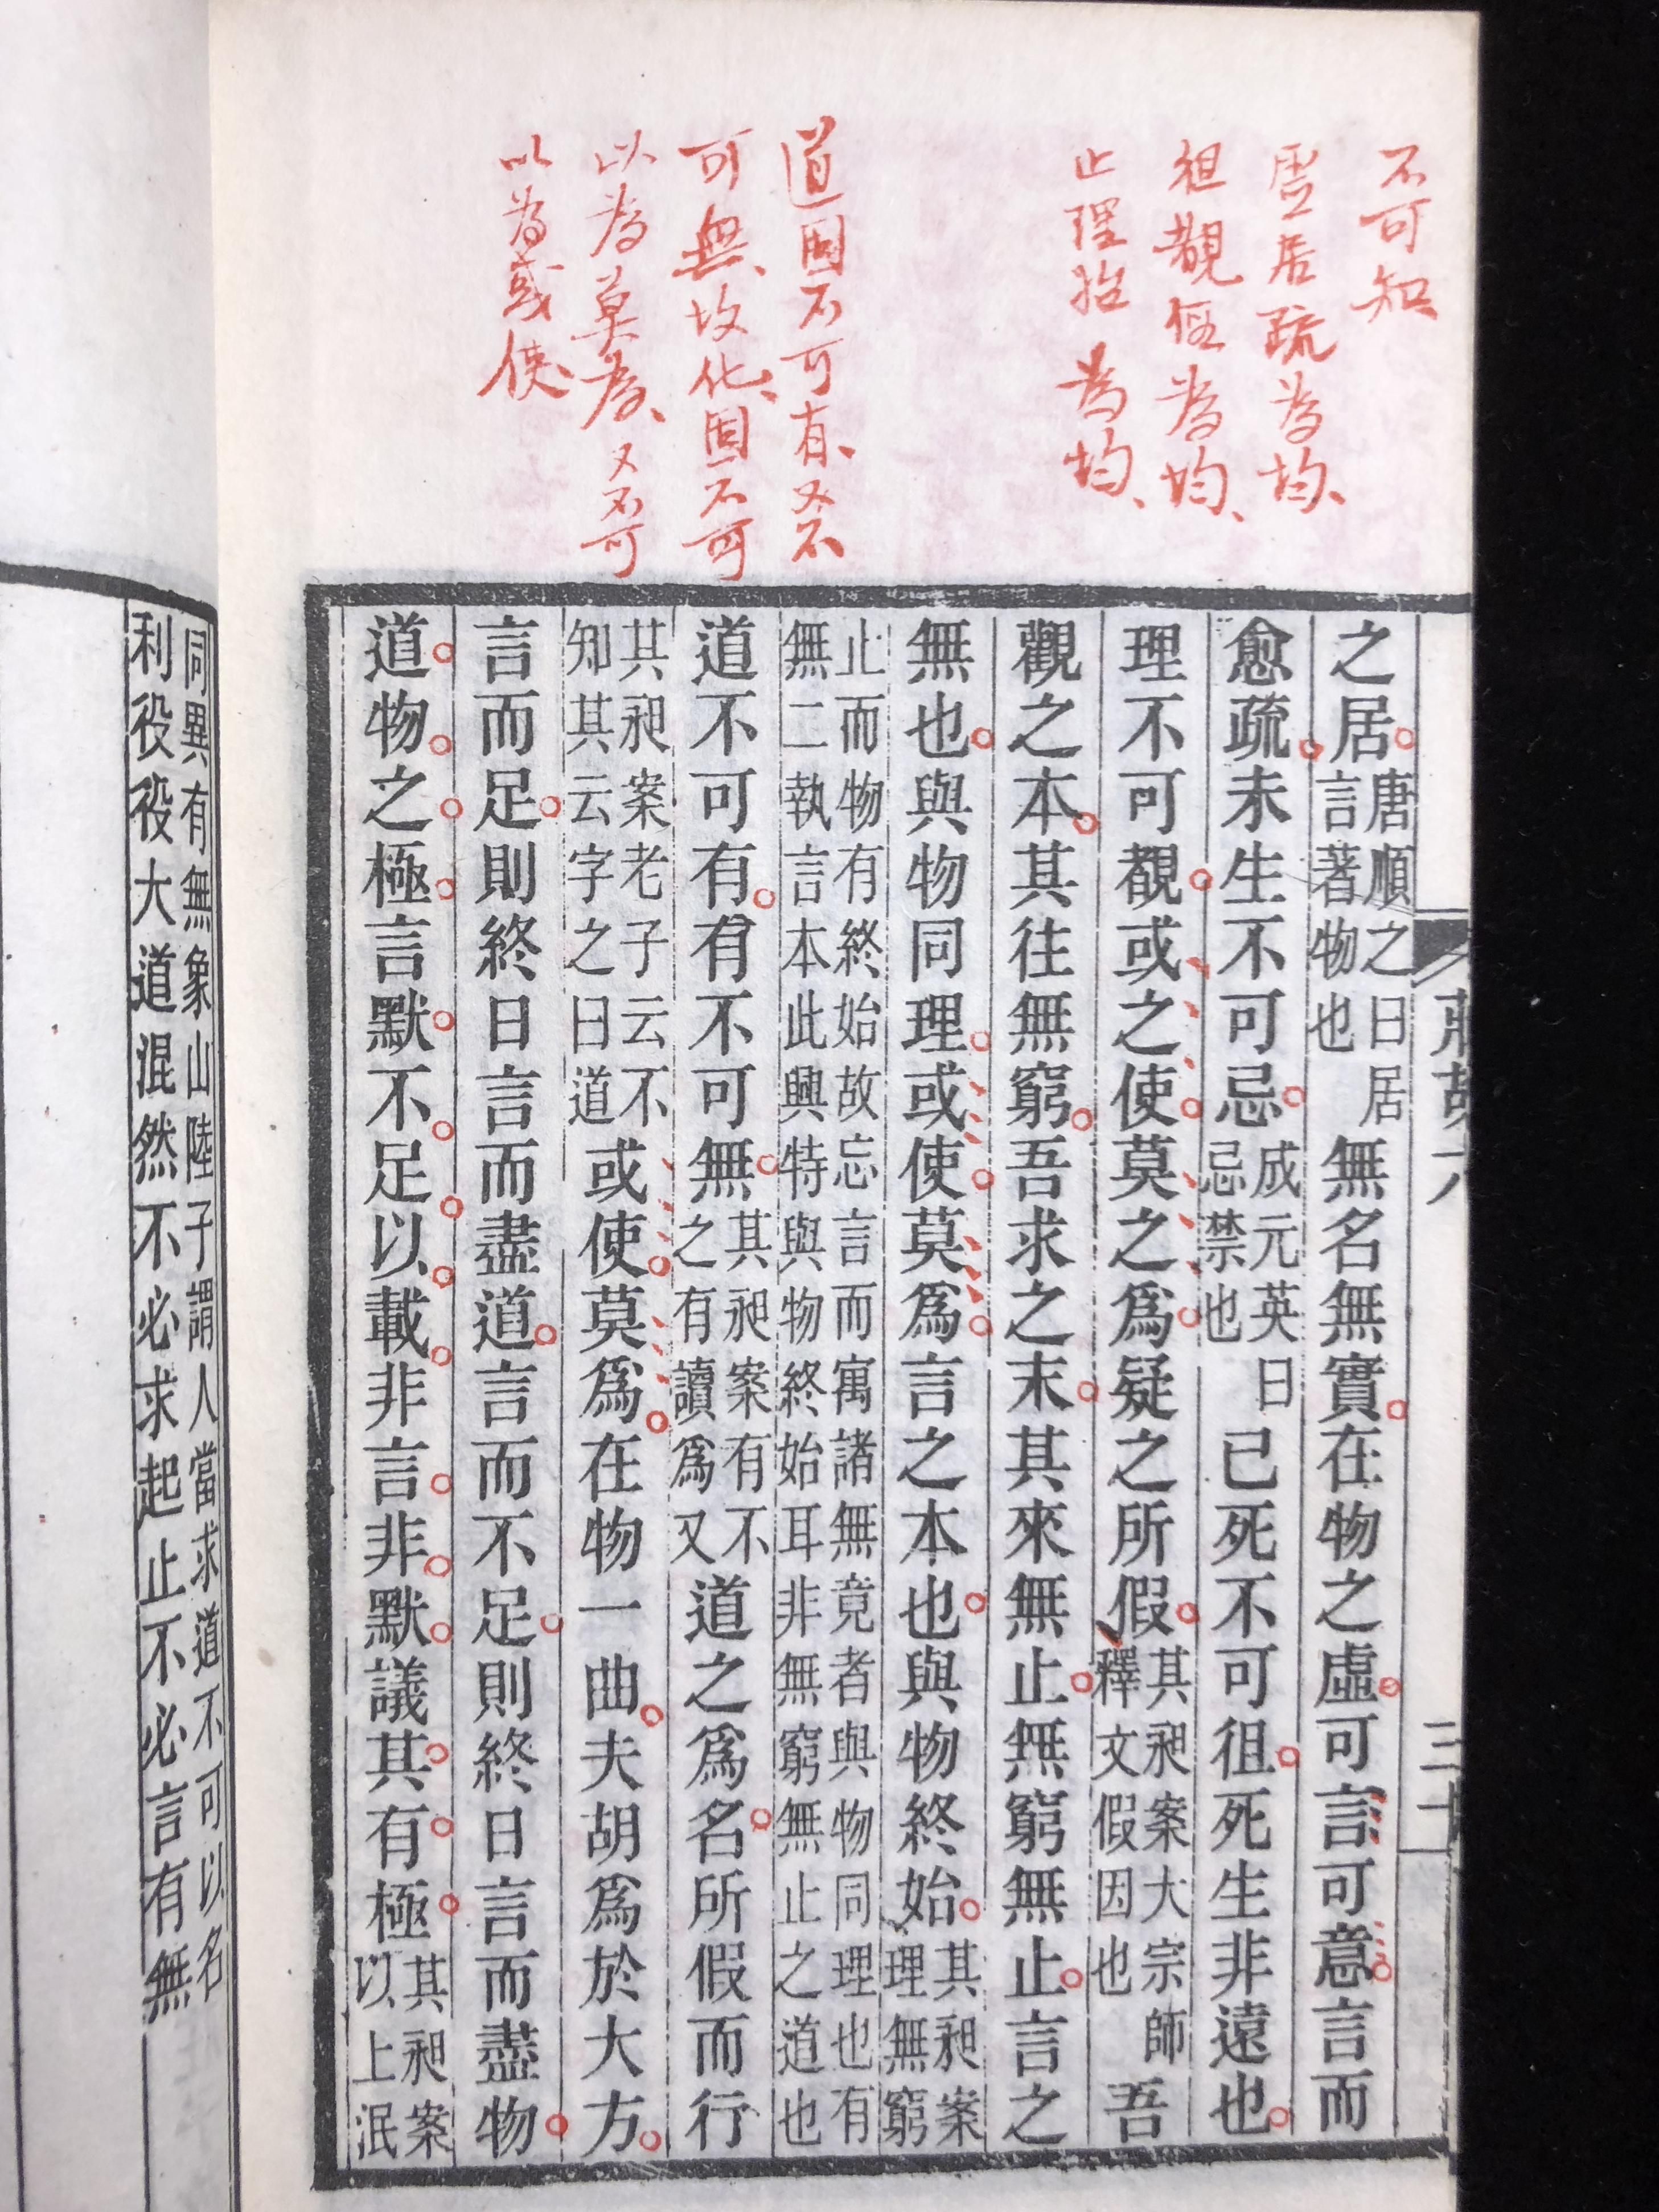 不可知
虛居疏為均、
徂覩假為均、
止理始為均、
道固不可有、又不
可無、故化、固不可
以為莫為、又不可
以為或使、
之居。唐順之曰居言著物也無名無實。在物之虛。可言可意。言而
愈疏。未生不可忌。成元英曰忌禁也已死不可徂。死生非遠也。
理不可覩。或之使。莫之爲。疑之所假。其昶案大宗師釋文假因也吾
觀之本。其往無窮。吾求之末。其來無止。無窮無止。言之
無也。與物同理。或使。莫爲。言之本也。與物終始。其昶案理無窮
止而物有終始故忘言而寓諸無竟者與物同理也有
無二執言本此興特與物終始耳非無窮無止之道也
道不可有。有不可無。其昶案有不之有讀爲又道之爲名。所假而行
其昶案老子云不知其云字之曰道或使。莫爲。在物一曲。夫胡爲於大方。
言而足。則終日言而盡道。言而不足。則終日言而盡物。
道。物。之。極。言默。不。足。以。載。非言。非。默。議其。有。極。其昶案以上泯
同異有無象山陸子謂人當求道不可以名
利役役大道混然不必求起止不必言有無